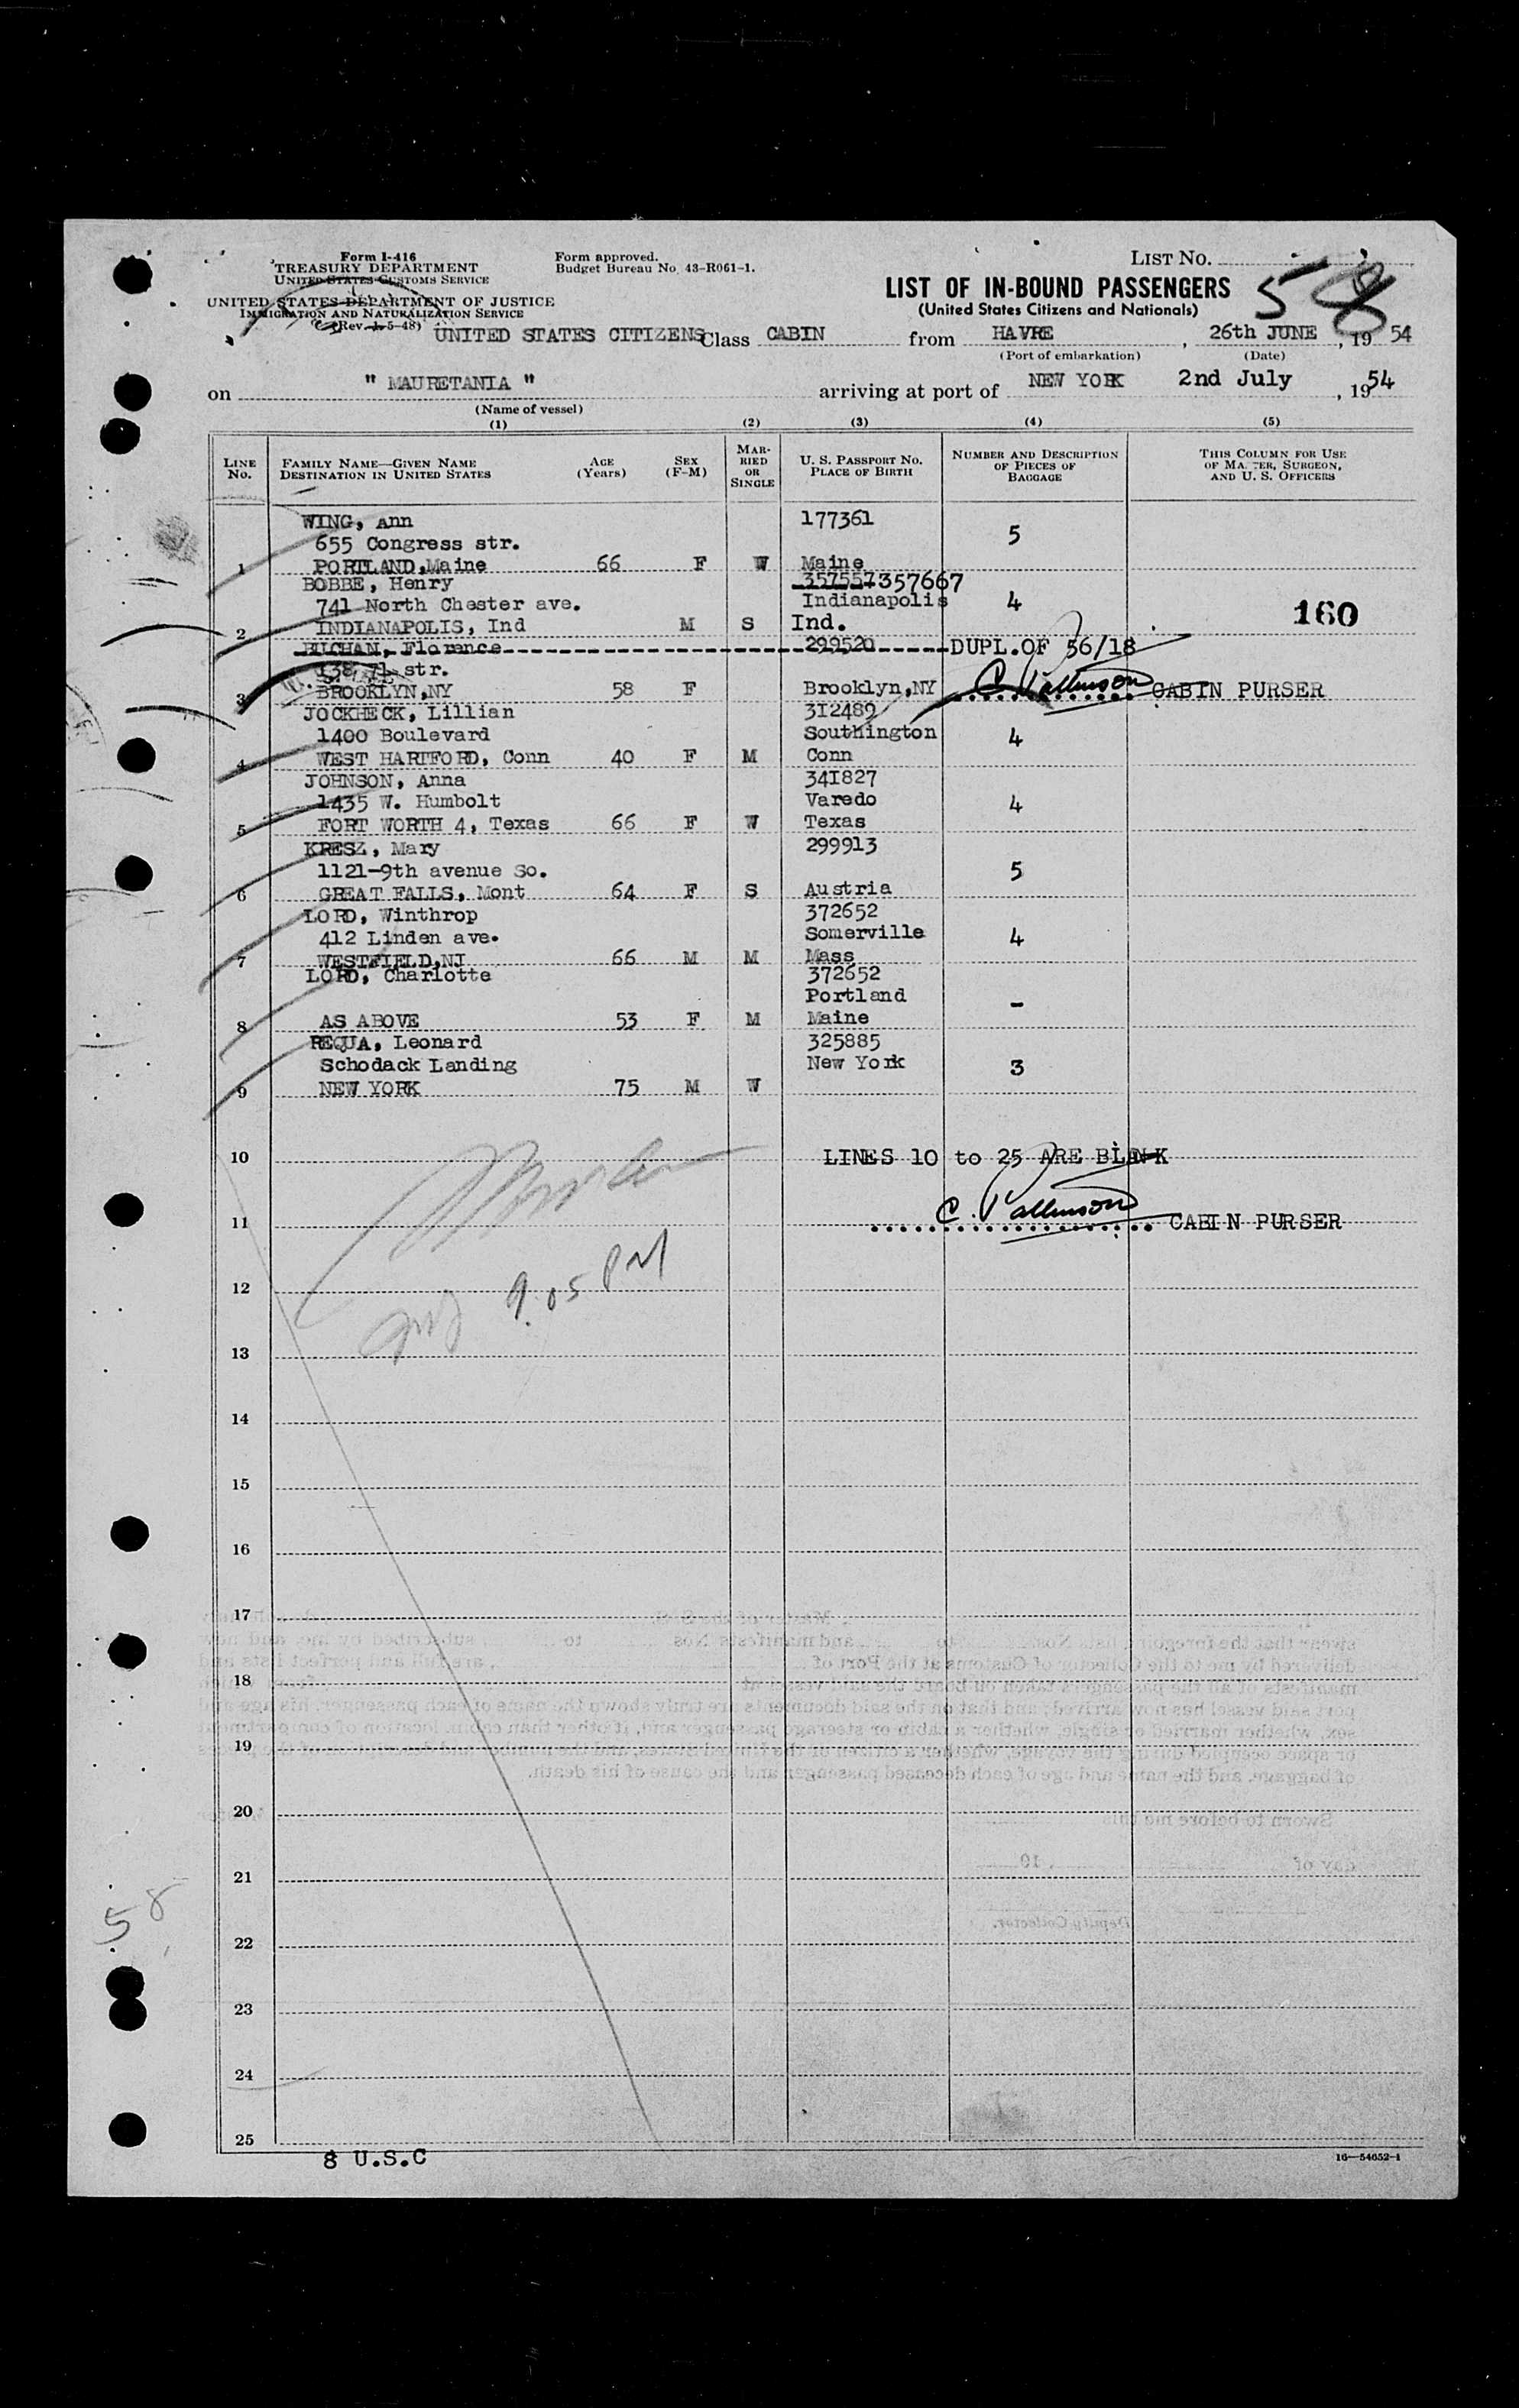 Form I-416
TREASURY DEPARTMENT
UNITED STATES CUSTOMS SERVICE
UNITED STATES DEPARTMENT OF JUSTICE
IMMIGRATION AND NATURALIZATION SERVICE
(Rev. 1-5-48)
Form approved.
Budget Bureau No. 43-R061-1.
LIST NO.
58
LIST OF IN-BOUND PASSENGERS
(United States Citizens and Nationals)
UNITED STATES CITIZENS Class CABIN from HAVRE, 26th JUNE, 19 54
(Port of embarkation) (Date)
on " MAURETANIA " arriving at port of NEW YORK 2nd July, 1954
(Name of vessel)
(1) (2) (3) (4) (5)
LINE NO. FAMILY NAME—GIVEN NAME DESTINATION IN UNITED STATES AGE (Years) SEX (F-M) MARRIED OR SINGLE U. S. PASSPORT NO. PLACE OF BIRTH NUMBER AND DESCRIPTION OF PIECES OF BAGGAGE THIS COLUMN FOR USE OF MASTER, SURGEON, AND U. S. OFFICERS
WING, Ann 177361
655 Congress str. 5
1 PORTLAND,Maine 66 F W Maine
BOBBE, Henry 357557 357667
741 North Chester ave. Indianapolis 4
2 INDIANAPOLIS, Ind M S Ind. 160
Florence 299520 DUPL.OF 56/18
138 71 str.
3 BROOKLYN,NY 58 F Brooklyn,NY C. Pattinson CABIN PURSER
JOCKHECK, Lillian 312489
1400 Boulevard Southington 4
4 WEST HARTFORD, Conn 40 F M Conn
JOHNSON, Anna 341827
1435 W. Humbolt Varedo 4
5 FORT WORTH 4, Texas 66 F W Texas
KRESZ, Mary 299913
1121-9th avenue So. 5
6 GREAT FALLS, Mont 64 F S Austria
LORD, Winthrop 372652
412 Linden ave. Somerville 4
7 WESTFIELD,NJ 66 M M Mass
LORD, Charlotte 372652
Portland -
8 AS ABOVE 53 F M Maine
REQUA, Leonard 325885
Schodack Landing New York 3
9 NEW YORK 75 M W
10 LINES 10 to 25 ARE BLANK
11 C. Pattinson CABIN PURSER
12 9.05 PM
13
14
15
16
17
18
19
20
21
22
23
24
25
58
8 U.S.C
16—54652-1